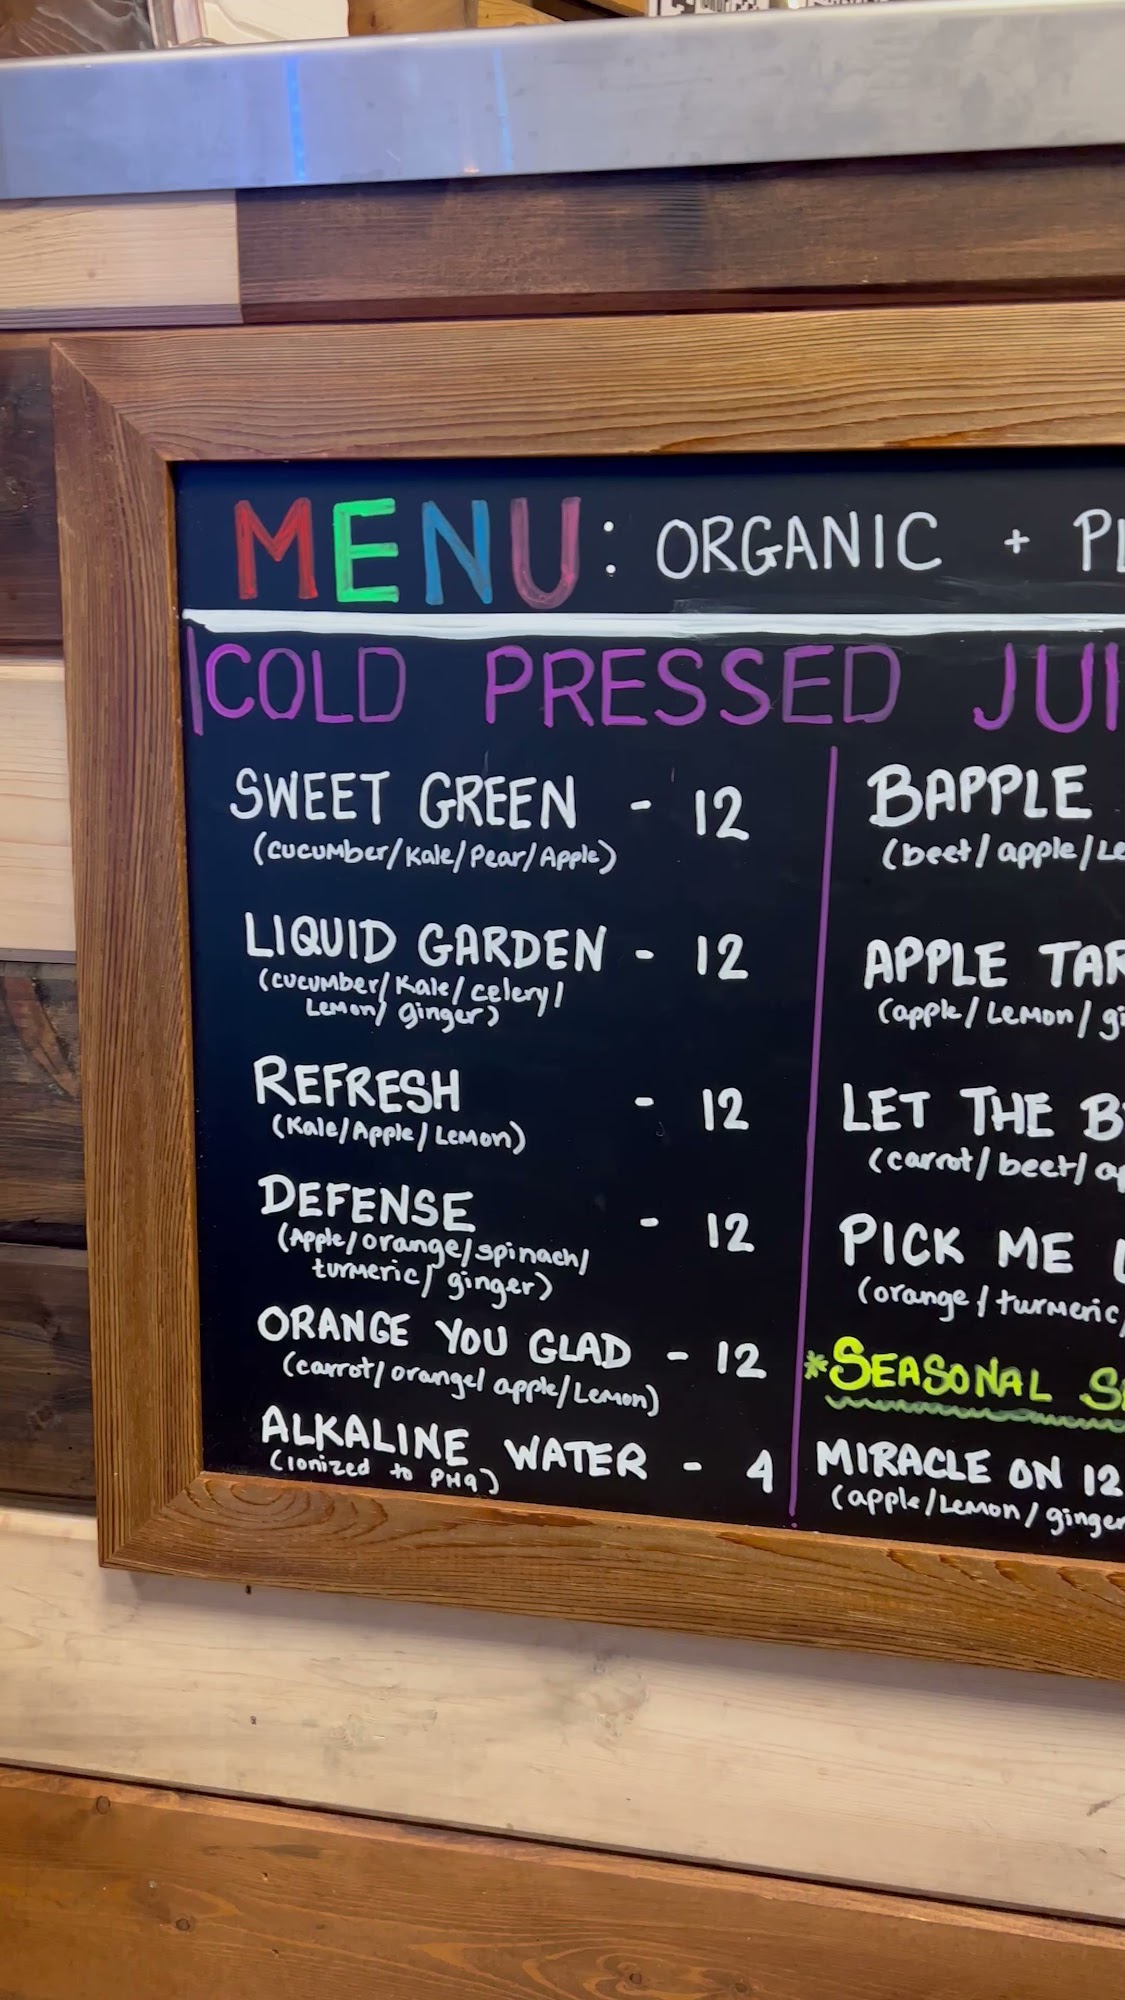 MENU: ORGANIC +
COLD PRESSED
SWEET GREEN - 12
(cucumber/Kale/Pear/Apple)
LIQUID GARDEN - 12
(cucumber/Kale/celery/
Lemon/ginger)
REFRESH - 12
(Kale/Apple/Lemon)
DEFENSE - 12
(Apple/orange/spinach/
turmeric/ginger)
ORANGE YOU GLAD - 12
(carrot/orange/apple/Lemon)
ALKALINE WATER - 4
(ionized to PH9)
BAPPLE
(beet/apple/
APPLE
(apple/Lemon/
LET THE
(carrot/beet/
PICK ME
(orange/turmeric/
*SEASONAL
MIRACLE ON 12
(apple/Lemon/ginger